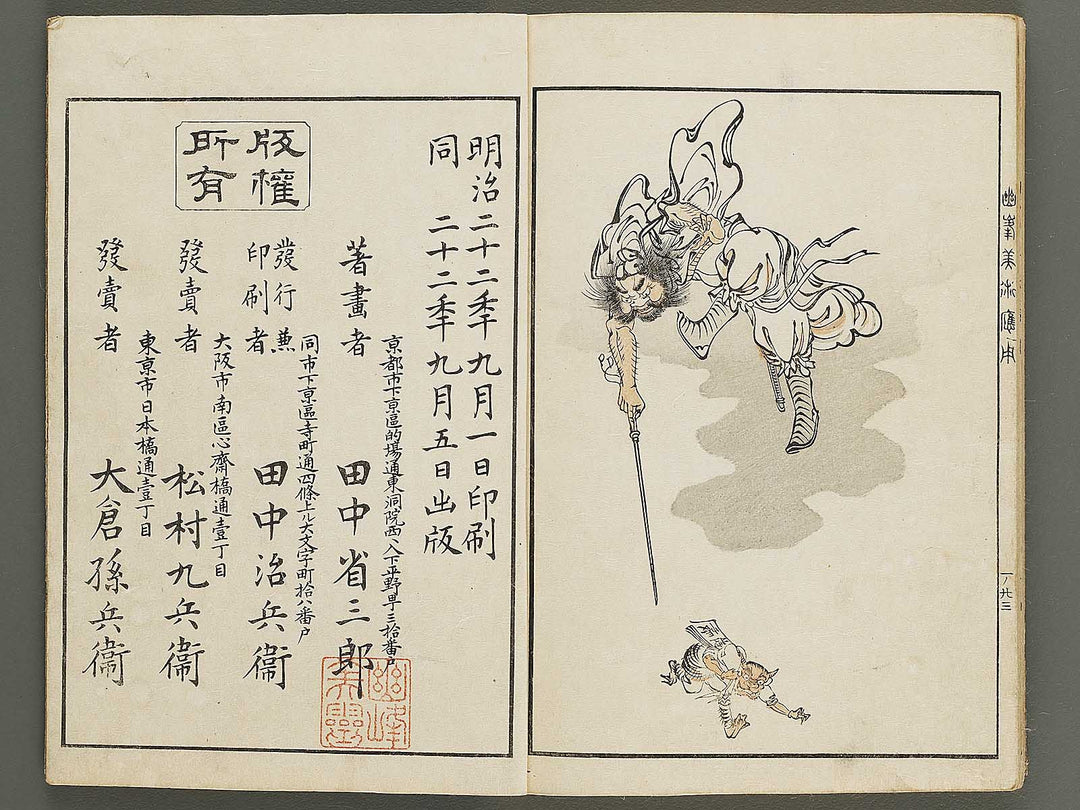 幽峯美術應用
明治二十二年九月一日印刷
同 二十二年九月五日出版
版權所有
京都市下京區的場通東洞院西入下平野町三拾番戶
著畫者 田中省三郎
同市下京區寺町通四條上ル大文字町拾八番戶
發行兼印刷者 田中治兵衞
大阪市南區心齋橋通壹丁目
發賣者 松村九兵衞
東京市日本橋通壹丁目
發賣者 大倉孫兵衞
幽峰